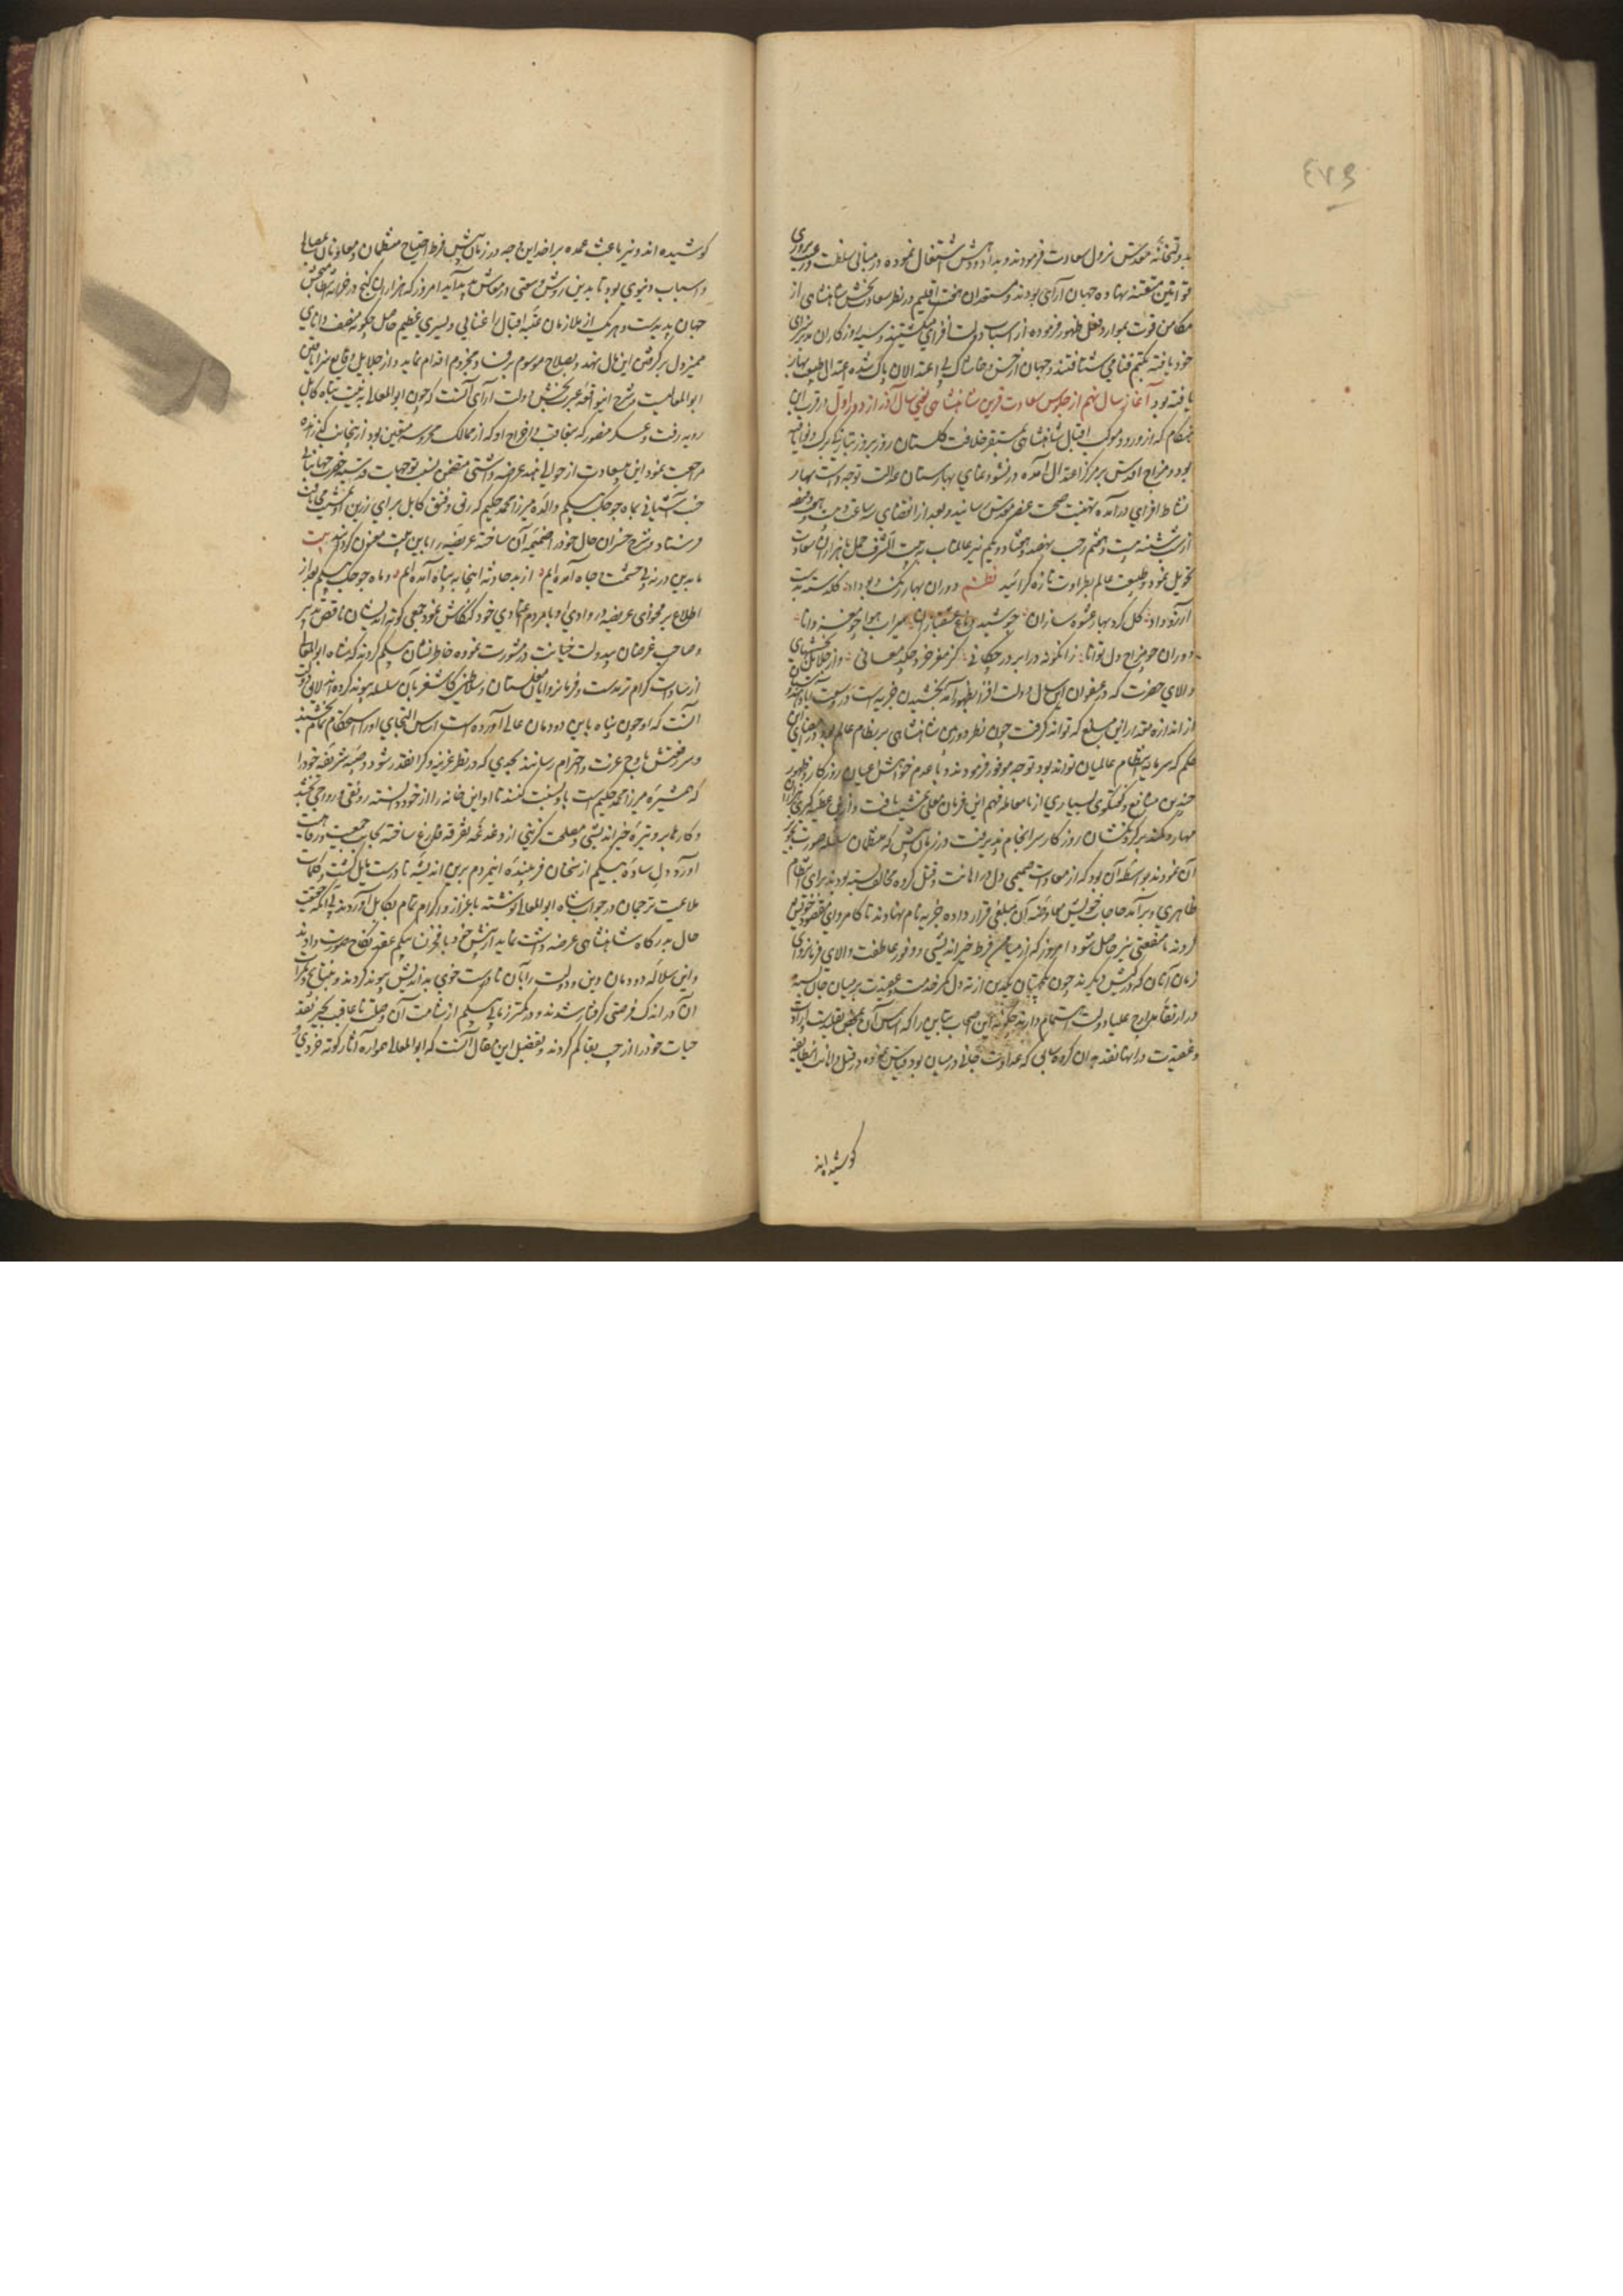 ٤٧٩
بدولتخانهٔ مقدس نزول سعادت فرمودند و بداد و دهش اشتغال نموده در مبانی سلطنت و رعیت پروری
قوانین متقنه نهاده جهان آرای بودند و مستعدان هفت اقلیم در نظر سعادت بخش شاهنشاهی از
مکامن قوت بموارد فعل ظهور فرموده از اسباب دولت افزای میگشتند و سیه روزگاران بد سزای
خود یافته بکتم فنا می شتافتند و جهان از خس و خاشاک بی اعتدالان پاک شده اعتدال طبع بهار
یافته بود آغاز سال نهم از جلوس سعادت قرین شاهنشاهی یعنی سال آذر از دور اول درین
هنگام که از ورود موکب اقبال شاهنشاهی مستقر خلافت گلستان روز بروز بتازگی
بود و مزاج اقدس بر مرکز اعتدال آمده در نشو و نمای بهارستان عدالت توجه داشت بهار
نشاط افزای درآمده تهنیت صحت عنصر مقدس رسانید و بعد از انقضای نه ساعت و
از شب شنبه بیست و هفتم رجب نهصد و هفتاد و یکم نیر عالمتاب به بیت الشرف حمل با هزاران سعادت
تحویل نمود و طبیعت عالم بطراوت تازه گرائید نظم دوران بهار رنگ و بو داد گلدسته بدست
آرزو داد گل کرد بهار عشوه سازان جوشید دماغ عشقبازان میراب هوا چو مغز دانا
دوران چو مزاج دل توانا زانگونه در ابر درچکانی کز مغز خرد چکد معانی و از جلایل بخششهای
والای حضرت که در عنفوان این سال دولت افزا بظهور آمد بخشیدن جزیه است در وسعت آباد هند
از اندازه مقدار این مبلغ که تواند گرفت چون نظر دوربین شاهنشاهی بر نظام عالم بود در امضای این
حکم که سرمایهٔ انتظام عالمیان تواند بود توجه موفور فرمودند و با عدم خواهش اعیان روزگار و ظهور
چندین منافع و گفتگوی بسیاری از نامعامله فهم این فرمان معلی نفاذ یافت و از این عطیه کبری
مهار و کمند بر گردنکشان روزگار سرانجام پذیرفت در زمان پیش که منتظمان سلسله صورت تجویز
آن نمودند بواسطه آن بود که از معاداة صمیمی دل در اهانت و قتل گروه مخالف بسته بودند برای انتظام
ظاهری و برآمد حاجات خویش معاوضه آن مبلغی قرار داده جزیه نام نهادند تا کامروای مقصود خویش
گردند تا منفعتی نیز حاصل شود امروز که از میامن فرط خیراندیشی و وفور عاطفت والای فرمانروای
زمان آنان که در کیش دیگرند چون یکجهتان یکدین از ته دل کمر خدمت و عقیدت بر میان جان بسته
در ارتقاء مدارج علیاء دولت اهتمام دارند چگونه این اصحاب متاین را که اساس آن بمحض تقلید است
و عقیدت درآنها نقد بدان گروه سابق که عداوت جانی در میان بود قیاس نموده در قتل و اهانت این طایفه
کوشیده اند
کوشیده اند و نیز باعث عمده بر اخذ این وجه در زمان پیش فرط احتیاج منتظمان و معاونان بمال
و اسباب دنیوی بود تا بدین روش وسعتی در معاش پدید آید امروز که هزاران گنج در خزانه انتظام بخش
جهان پدیدست و هر یک از ملازمان عتبه اقبال را غنایی و یسری عظیم حاصل چگونه منصف دانای
ممیز دل بر گرفتن این مال نهد و بصلاح موسوم بر فساد مجزوم اقدام نماید و از جلایل وقایع سزا یافتن
ابوالمعالیست و شرح این واقعه عبرت بخش دولت آرای آنست که چون ابوالمعالی به نیت تباه کابل
رویه رفت و عسکر منصور که بتعاقب و اخراج او که از ممالک محروسه متعین بود از پنجاب گذرانده
مراجعت نمود این بی سعادت از حوالی سند عرضه داشتی متضمن نسبت توجهات قدسیه حضرت جهانبانی
جنت آشیانی بماه چوچک بیگم والده میرزا محمد حکیم که رتق و فتق کابل برای زرین او تمشیت می یافت
فرستاد و شرح خسران حال خود را ضمیمه آن ساخته عریضه را باین بیت معنون گردانید بیت
ما بدین در نه پی حشمت و جاه آمده ایم از بد حادثه اینجا به پناه آمده ایم و ماه چوچک بیگم بعد از
اطلاع بر فحوای عریضه در وادی او با مردم اعتمادی خود کنکاش نمود جمعی کوته اندیشان ناقص تدبیر
و صاحب غرضان بیدولت خیانت در مشورت نموده خاطرنشان بیگم کردند که شاه ابوالمعالی
از سادات کرام ترمذست و فرمانروایان مغلستان و سلاطین کاشغر بآن سلسله پیوند کرده اند لایق دولت
آنست که او چون پناه باین دودمان عالی آورده است اساس التجای او را استحکام تمام بخشند
و سر رفعتش باوج عزت و احترام رسانند بحدی که در نظر عزیز و گرانقدر شود و صبیه شریفه خود را
که همشیرهٔ میرزا محمد حکیم است باو نسبت کنند تا او این خانه را از خود دانسته رونقی و رواجی بخشد
و کارها بر وتیرهٔ خیراندیشی و مصلحت گزینی از دغدغه تفرقه فارغ ساخته بجانب جمعیت و رفاهیت
آورد و دل سادهٔ بیگم از سخنان فریبندهٔ این مردم برین اندیشه نادرست مایل گشت و کلمات
ملاعبت ترجمان در جواب شاه ابوالمعالی نوشته باعزاز و اکرام تمام بکابل آوردند بی آنکه حقیقت
حال بدرگاه شاهنشاهی عرضه داشت نماید از پیش خود با فخرنسا بیگم عقد نکاح صورت دادند
و این سلاله دودمان دین و دولت را بآن نادرست خوی بداندیش پیوند کردند و بنتایج
آن در اندک فرصتی گرفتار شدند و در کمتر زمانی بیگم از شامت آن وصلت ناعاقبت بخیر نقد
حیات خود را از جیب بقا گم کردند و تفصیل این مقال آنست که ابوالمعالی همواره آثار کوته خردی و